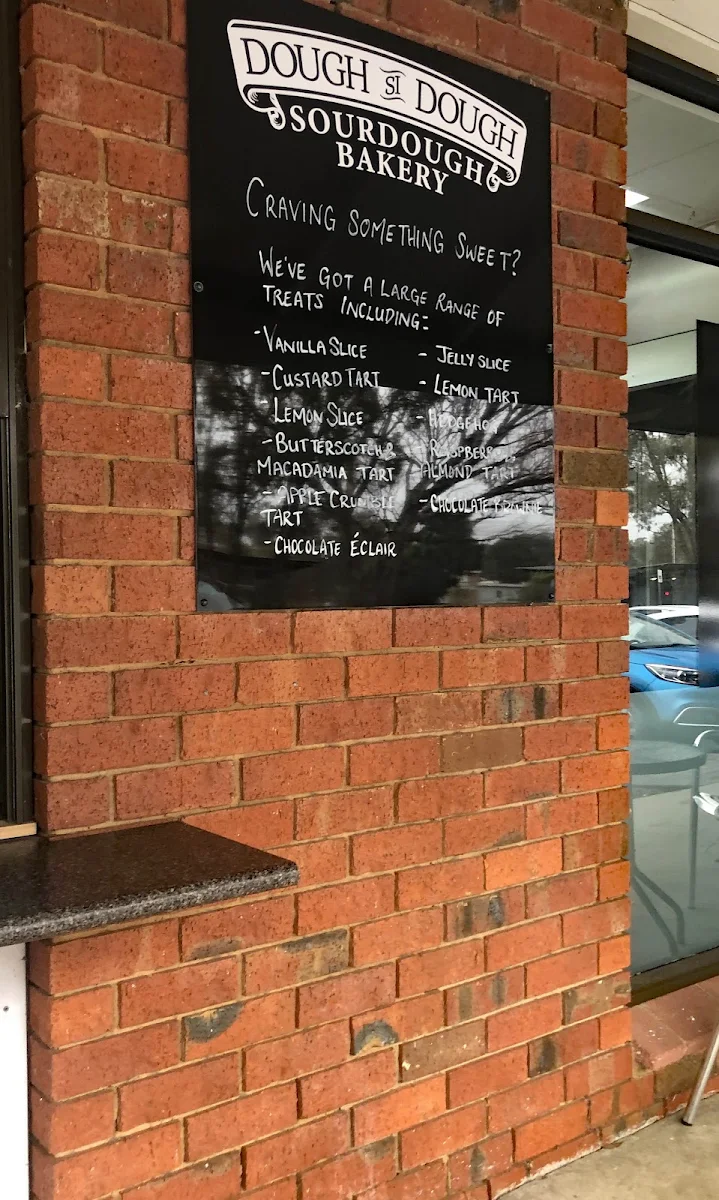 DOUGH SI DOUGH
SOURDOUGH
BAKERY
CRAVING SOMETHING SWEET?
WE'VE GOT A LARGE RANGE OF
TREATS INCLUDING:
- VANILLA SLICE
- CUSTARD TART
- LEMON SLICE
- BUTTERSCOTCH &
MACADAMIA TART
- APPLE CRUMBLE
TART
- CHOCOLATE ÉCLAIR
- JELLY SLICE
- LEMON TART
- HEDGEHOG
- RASPBERRY &
ALMOND TART
- CHOCOLATE BROWNIE